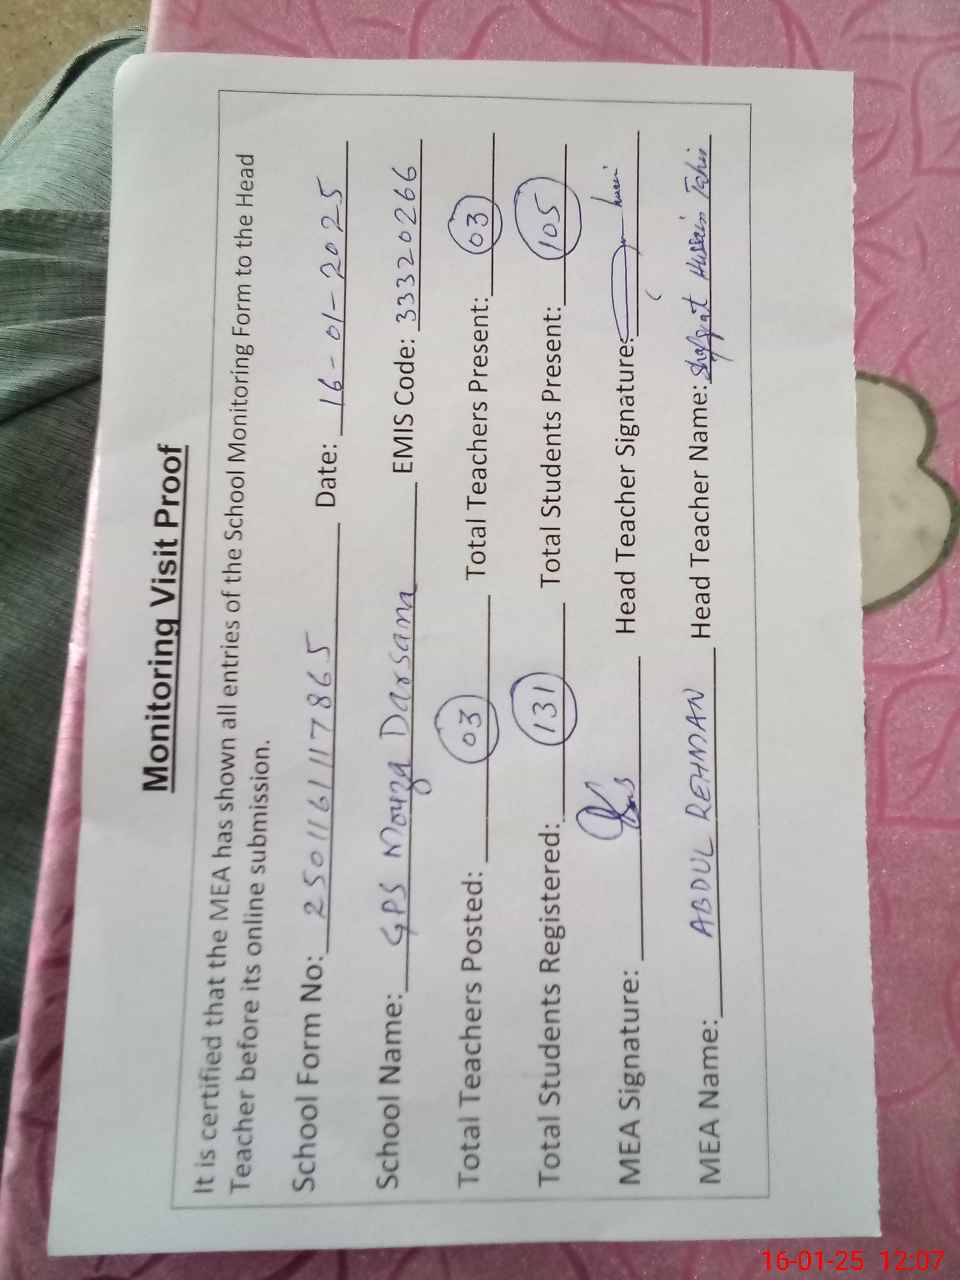 Monitoring Visit Proof
It is certified that the MEA has shown all entries of the School Monitoring Form to the Head
Teacher before its online submission.
School Form No: 2501161117865 Date: 16-01-2025
School Name: GPS Mouza Darsana EMIS Code: 33320266
Total Teachers Posted: 03 Total Teachers Present: 03
Total Students Registered: 131 Total Students Present: 105
MEA Signature: Head Teacher Signature:
MEA Name: ABDUL REHMAN Head Teacher Name: Shafqat Hussain Tahir
16-01-25 12:07